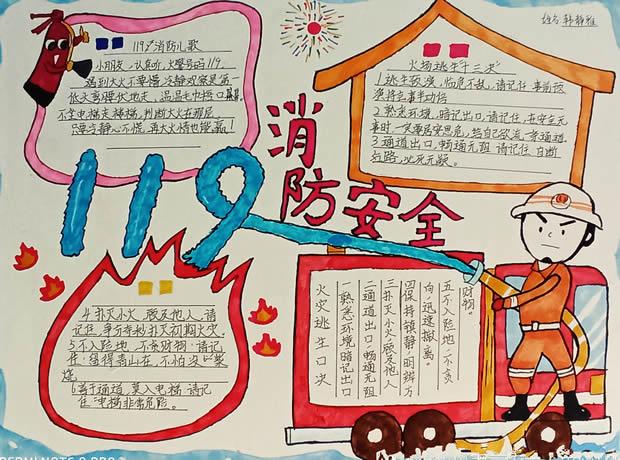 姓名:韩静雅
119消防儿歌
小朋友,认真听,火警号码119.
遇到大火不要慌,冷静观察是第一
低头弯腰伏地走,湿湿毛巾捂口鼻
不坐电梯走楼梯,判断大火在那层
只要冷静心不慌,再大火情也能赢!
火场逃生十三决
1逃生预演,临危不乱,请记住 事前预
演将会事半功倍
2熟悉环境,暗记出口,请记住,在安全无
事时,一定要居安思危,给自己留一条通道
3.通道出口,畅通无阻 请记住 自断
后路,必死无疑。
消防安全
119
4.扑灭小火,惠及他人,请
记住,争分夺秒扑灭初期火灾。
5.不入险地,不贪财物:请记
住:留得青山在,不怕没柴
烧
6善于通道,莫入电梯 请记
住"电梯非常危险。
火灾逃生口决
一熟悉环境暗记出口
二通道出口,畅通无阻
三扑灭小火,惠及他人
四保持镇静,明辨方
向,迅速撤离。
五不入险地,不贪
财物。